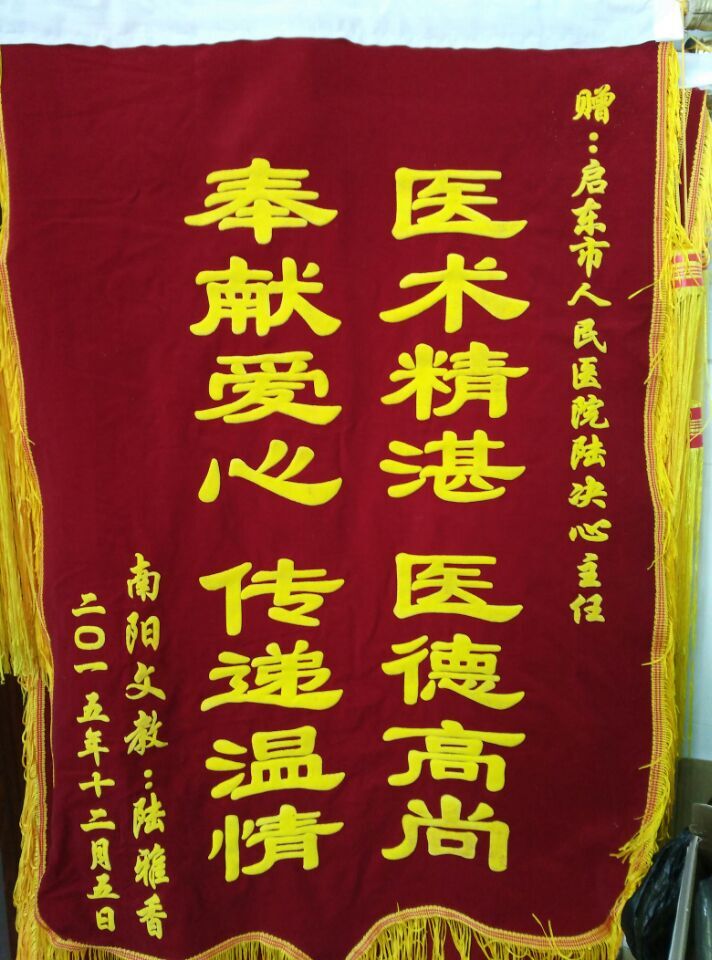 赠：启东市人民医院陆决心主任
医术精湛 医德高尚
奉献爱心 传递温情
南阳文教：陆雅香
二〇一五年十二月五日